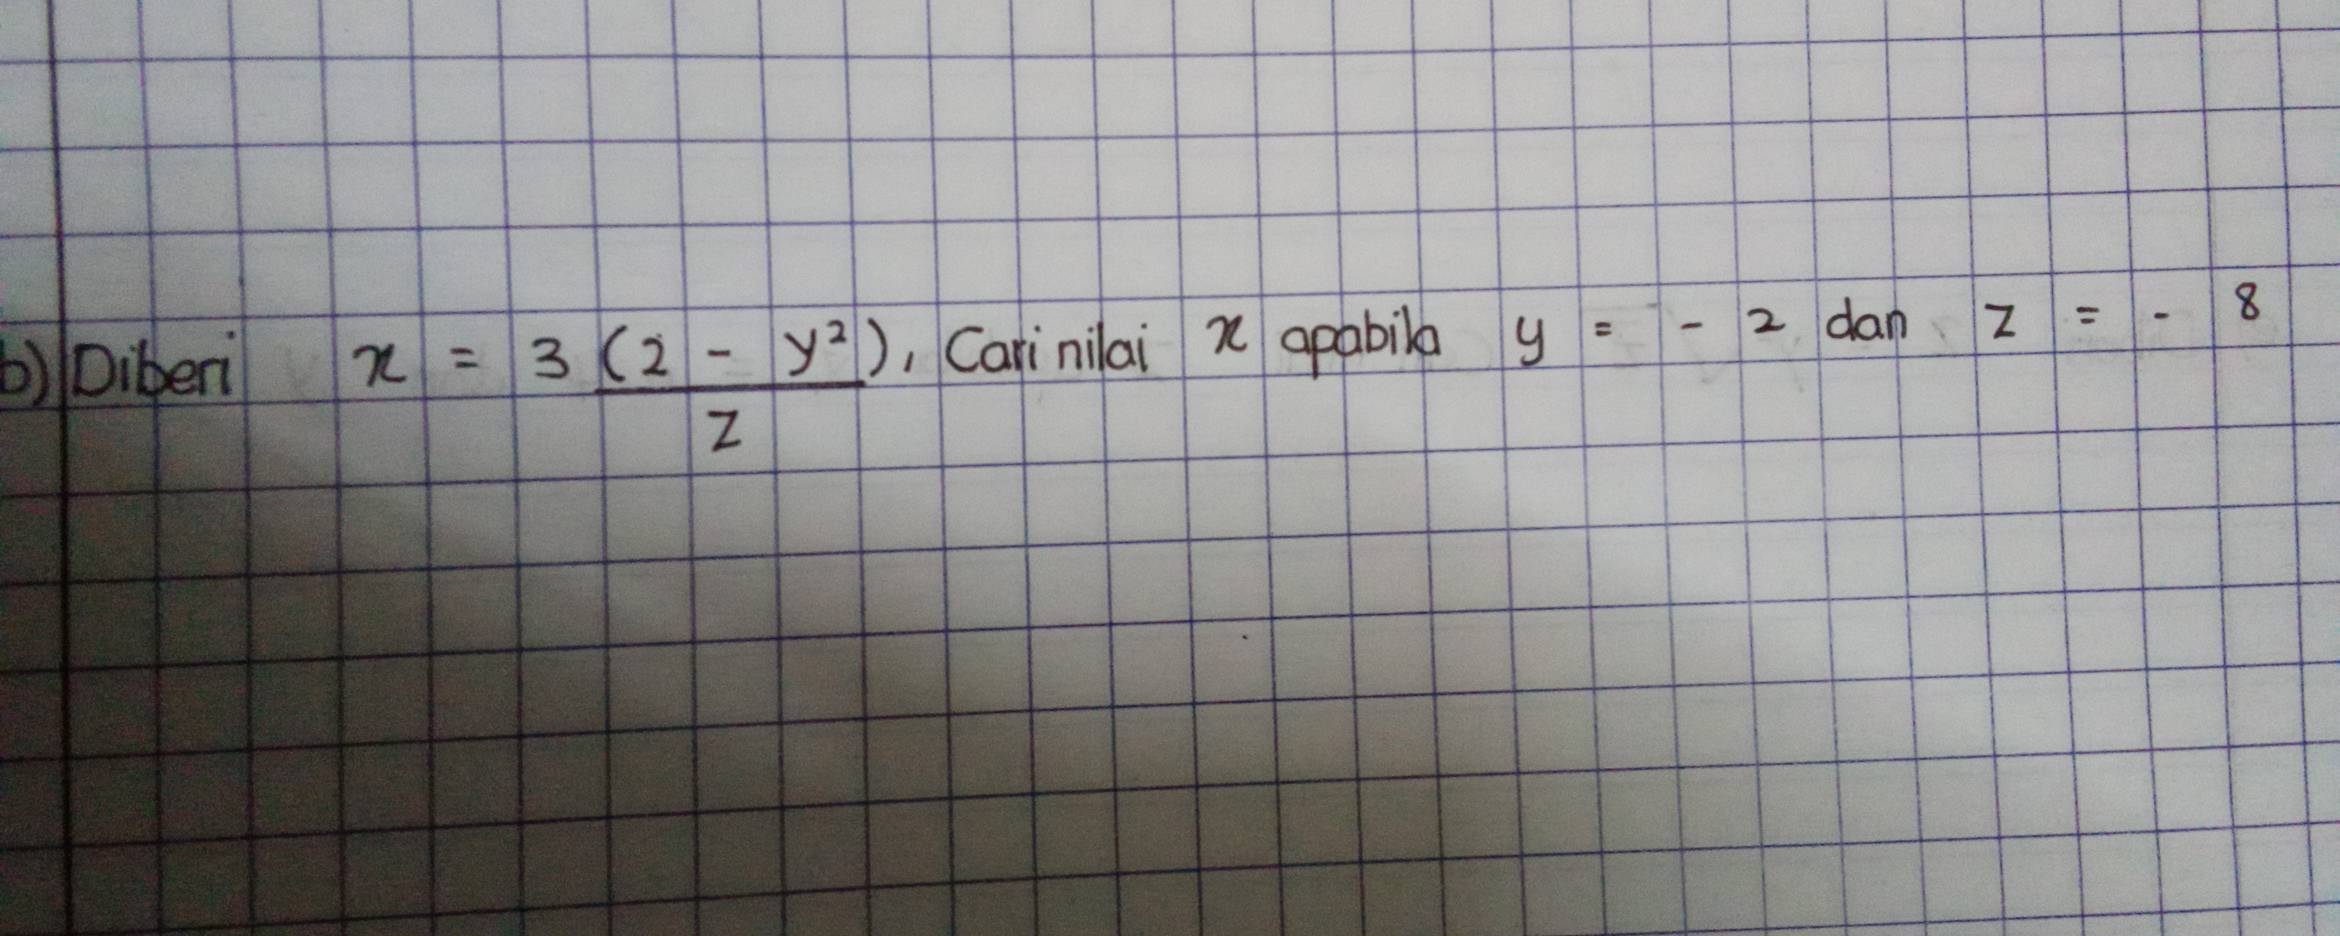 b) Diberi x = 3 (2 - y²), Cari nilai x apabila y = - 2 dan z = - 8
z